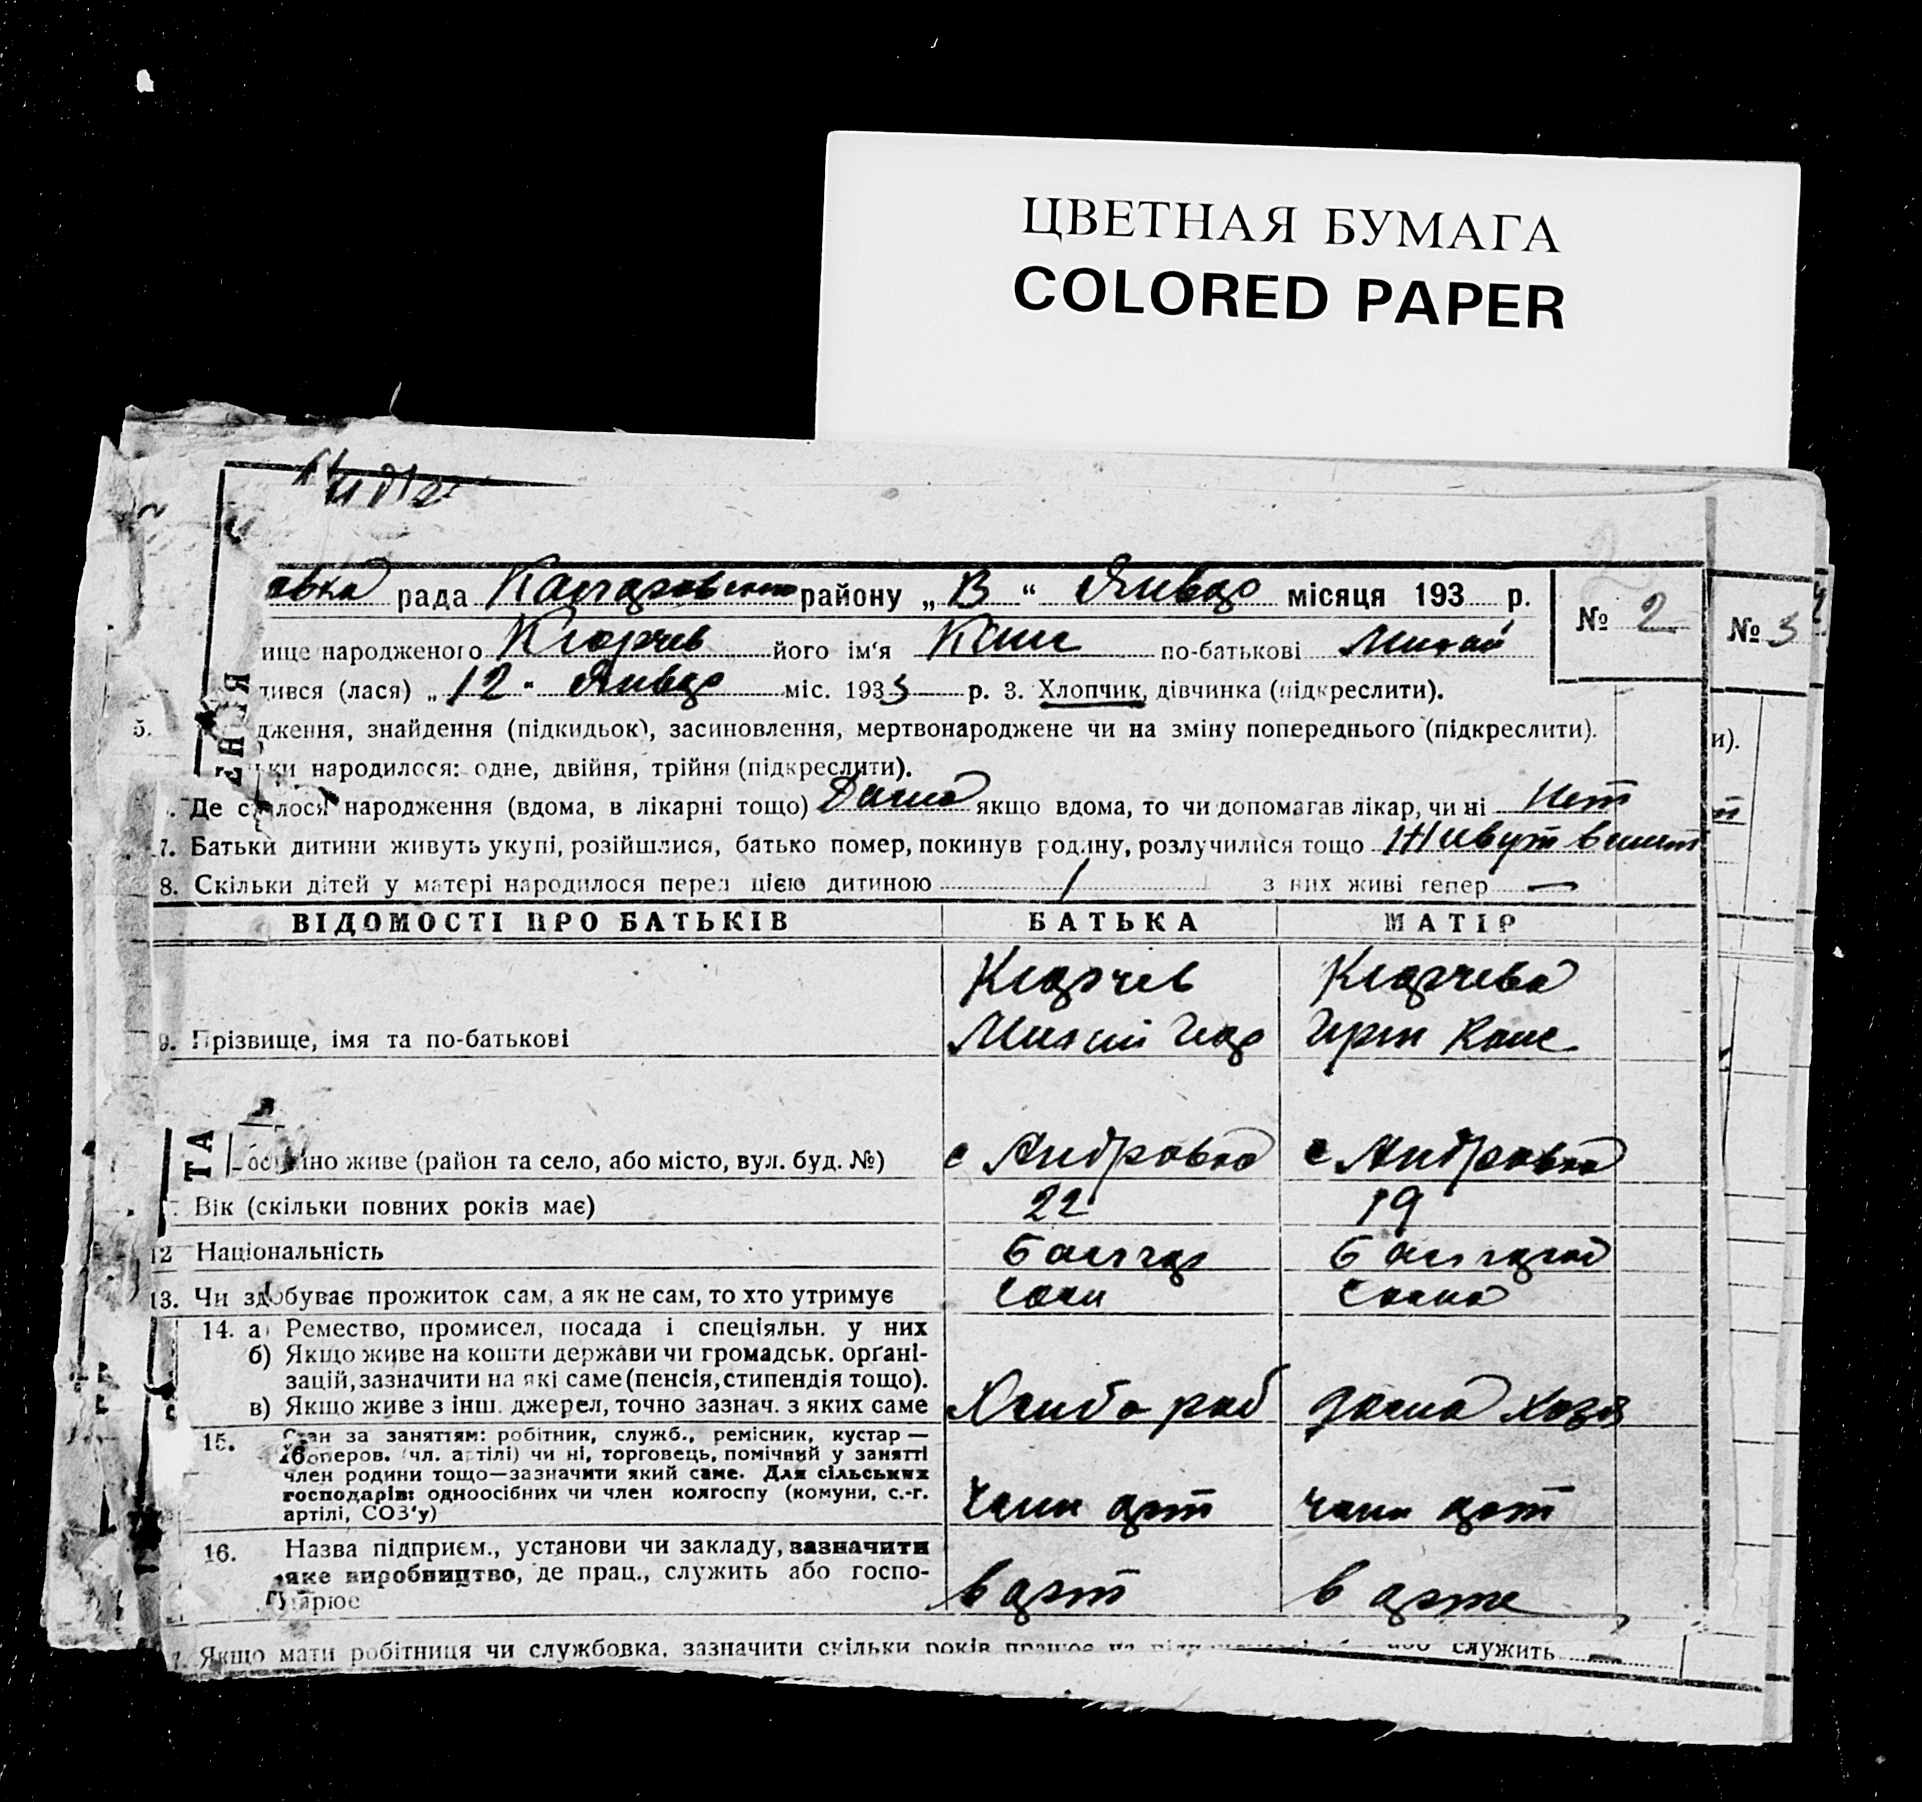 ЦВЕТНАЯ БУМАГА
COLORED PAPER
авка рада району „ “ Январ місяця 193 р.
№ 2
№ 3
ище народженого його ім‘я по-батькові
ився (лася) „12“ Январ міс. 1935 р. 3. Хлопчик, дівчинка (підкреслити).
5. дження, знайдення (підкидьок), засиновлення, мертвонароджене чи на зміну попереднього (підкреслити).
и).
ьки народилося: одне, двійня, трійня (підкреслити).
Де сталося народження (вдома, в лікарні тощо) Дома якщо вдома, то чи допомагав лікар, чи ні Нет
7. Батьки дитини живуть укупі, розійшлися, батько помер, покинув родину, розлучилися тощо Живут вмист
8. Скільки дітей у матері народилося перед цією дитиною 1 з них живі тепер —
ВІДОМОСТІ ПРО БАТЬКІВ БАТЬКА МАТІР
9. Прізвище, імя та по-батькові
ТА
но живе (район та село, або місто, вул. буд. №) с Андровка с Андровка
Вік (скільки повних років має) 22 19
12 Національність болгар болгарка
13. Чи здобуває прожиток сам, а як не сам, то хто утримує сам сама
14. а) Ремество, промисел, посада і спеціяльн. у них
б) Якщо живе на кошти держави чи громадськ. орґані-
зацій, зазначити на які саме (пенсія, стипендія тощо).
в) Якщо живе з інш. джерел, точно зазнач. з яких саме Хлибо роб дома хозя
15. Стан за заняттям: робітник, служб., ремісник, кустар —
кооперов. (чл. артілі) чи ні, торговець, помічний у занятті
член родини тощо—зазначити який саме. Для сільських
господарів: одноосібних чи член колгоспу (комуни, с.-г.
артілі, СОЗ‘у) член арт член арт
16. Назва підприєм., установи чи закладу, зазначити
яке виробництво, де прац., служить або госпо-
дарює в арт в арте
Якщо мати робітниця чи службовка, зазначити скільки років працює на або служить —